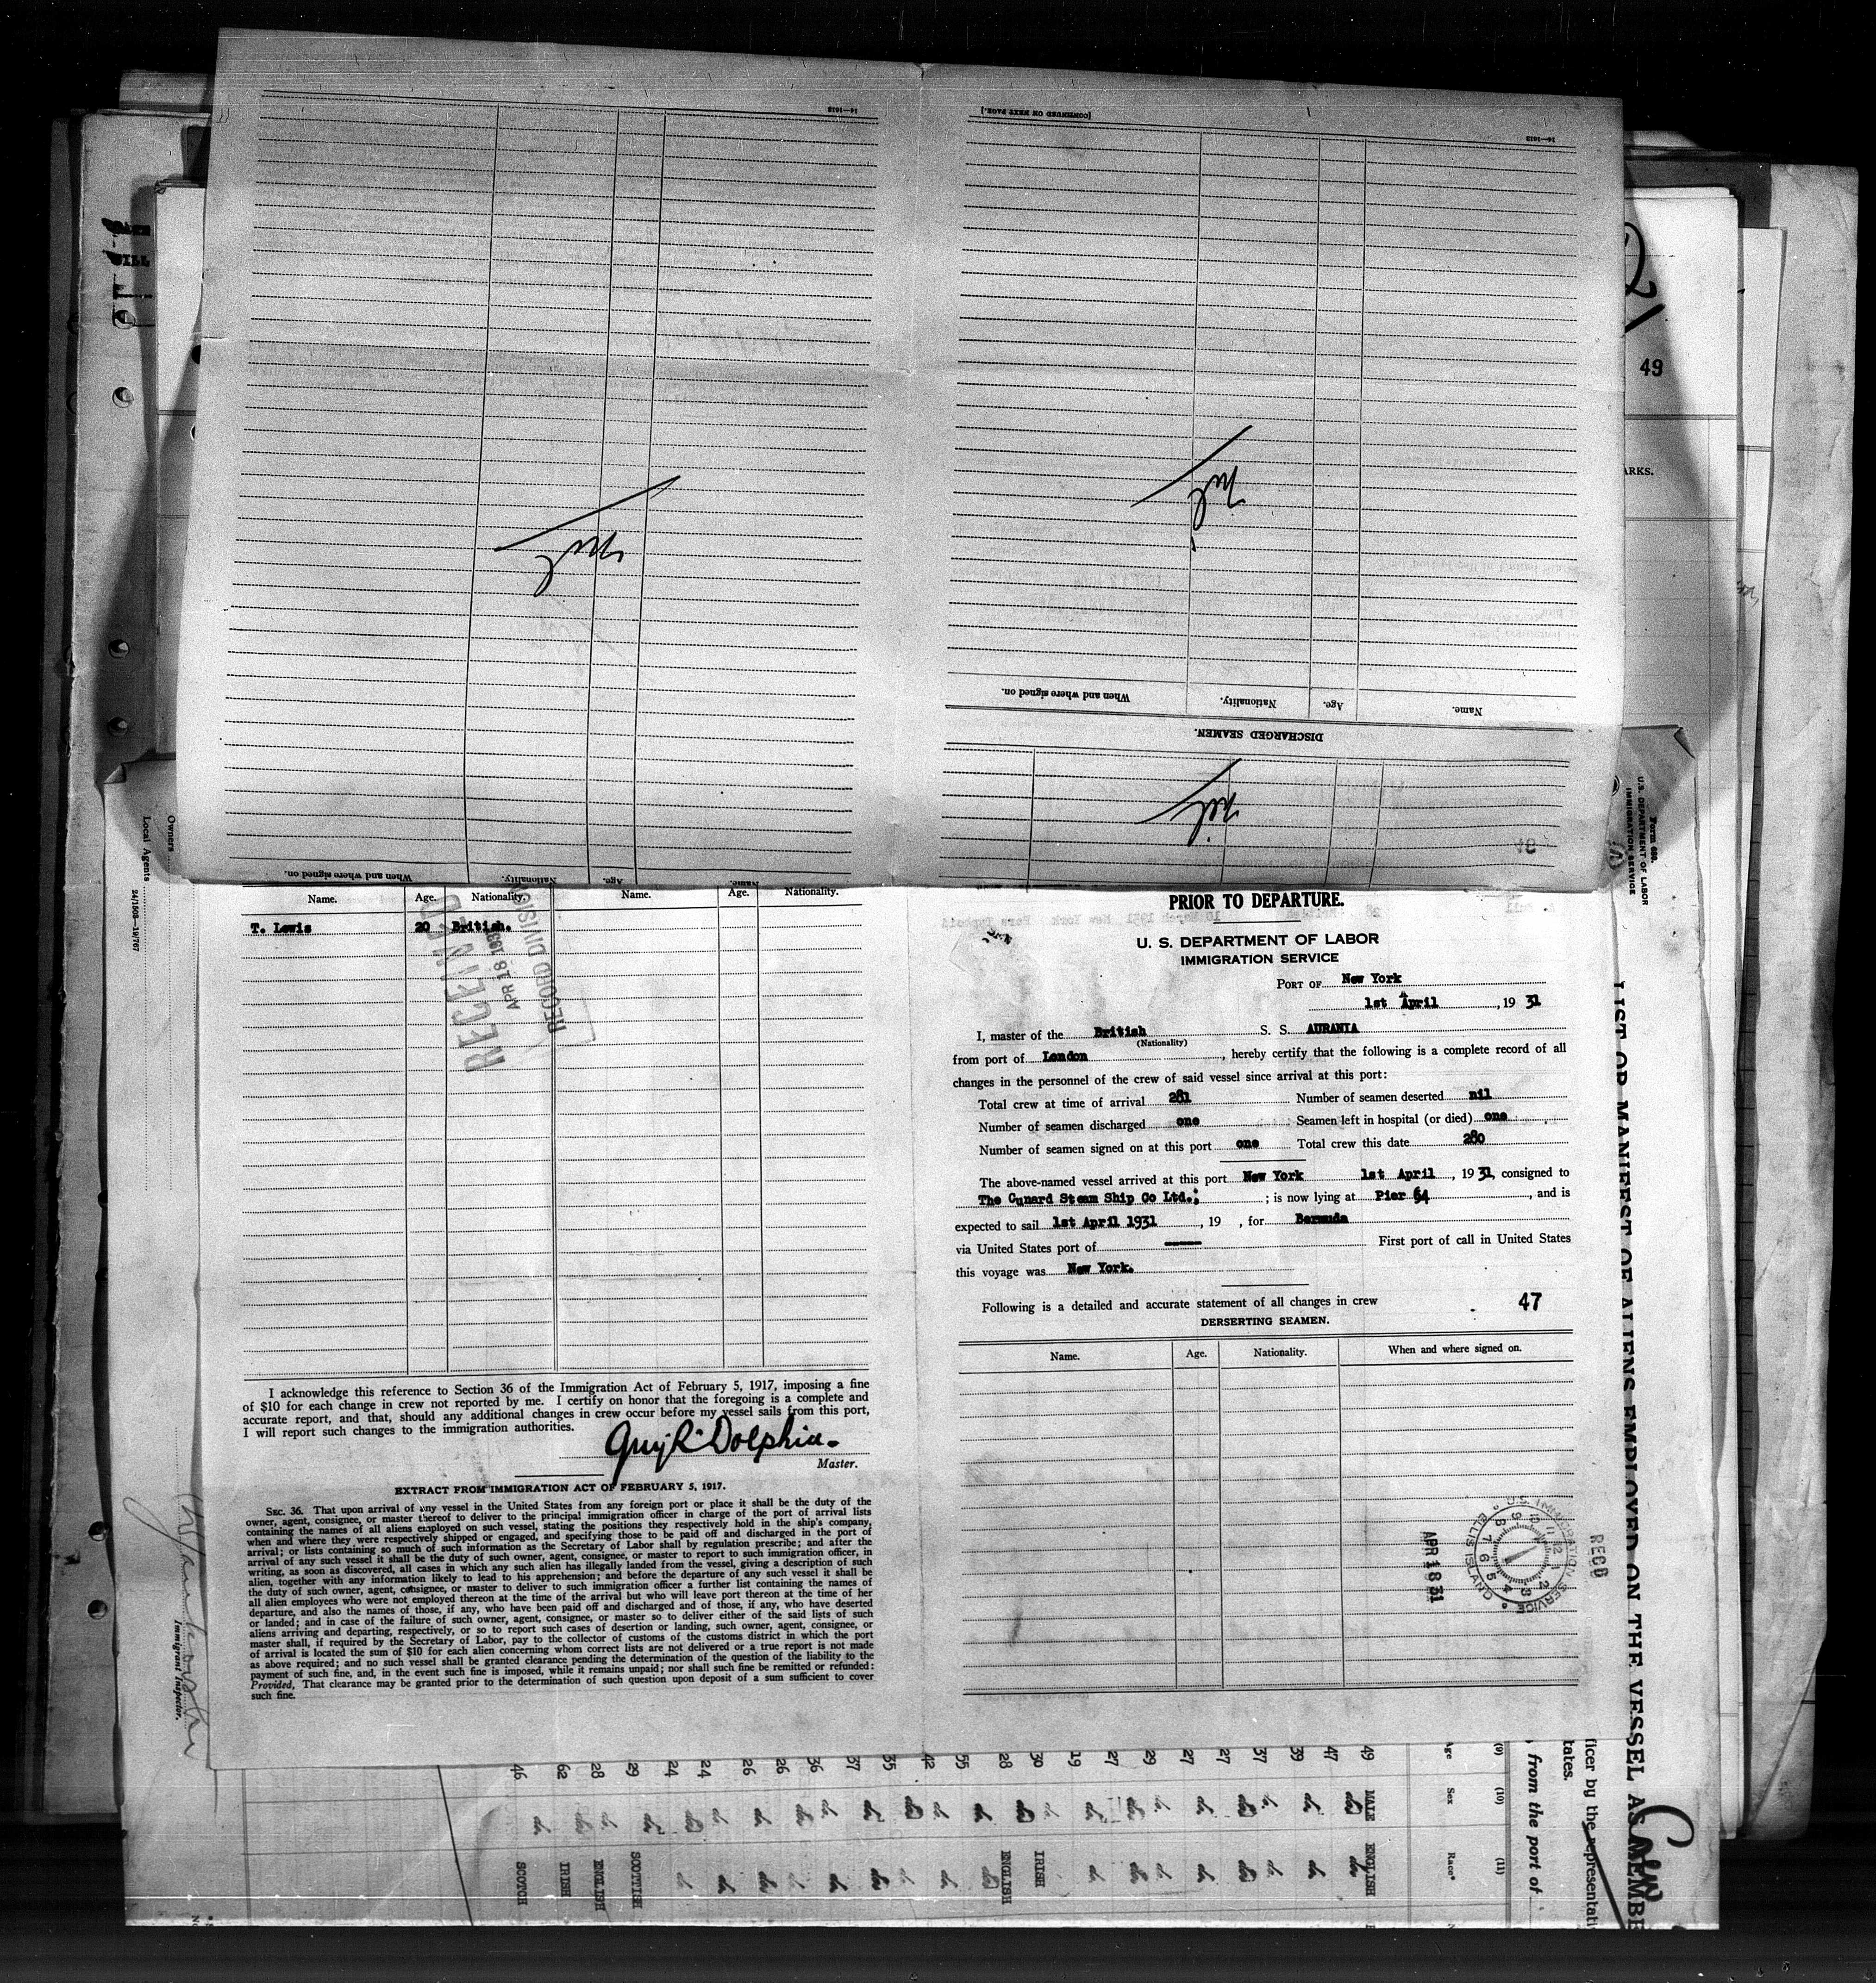 16—1613
[CONTINUED ON NEXT PAGE.]
16—1613
49
ARKS.
nil
nil
When and where signed on.
Nationality.
Age.
Name.
DISCHARGED SEAMEN.
nil
When and where signed on.
Nationality.
Age.
Name.
Owners
Local Agents
24/1508—19/767
Form 680.
U.S. DEPARTMENT OF LABOR
IMMIGRATION SERVICE
Name. Age. Nationality. Name. Age. Nationality.
T. Lewis 20 British.
RECEIVED
APR 18 1931
RECORD DIVISION
I acknowledge this reference to Section 36 of the Immigration Act of February 5, 1917, imposing a fine
of $10 for each change in crew not reported by me. I certify on honor that the foregoing is a complete and
accurate report, and that, should any additional changes in crew occur before my vessel sails from this port,
I will report such changes to the immigration authorities.
Guy R Dolphin.
Master.
EXTRACT FROM IMMIGRATION ACT OF FEBRUARY 5, 1917.
SEC. 36. That upon arrival of any vessel in the United States from any foreign port or place it shall be the duty of the
owner, agent, consignee, or master thereof to deliver to the principal immigration officer in charge of the port of arrival lists
containing the names of all aliens employed on such vessel, stating the positions they respectively hold in the ship's company,
when and where they were respectively shipped or engaged, and specifying those to be paid off and discharged in the port of
arrival; or lists containing so much of such information as the Secretary of Labor shall by regulation prescribe; and after the
arrival of any such vessel it shall be the duty of such owner, agent, consignee, or master to report to such immigration officer, in
writing, as soon as discovered, all cases in which any such alien has illegally landed from the vessel, giving a description of such
alien, together with any information likely to lead to his apprehension; and before the departure of any such vessel it shall be
the duty of such owner, agent, consignee, or master to deliver to such immigration officer a further list containing the names of
all alien employees who were not employed thereon at the time of the arrival but who will leave port thereon at the time of her
departure, and also the names of those, if any, who have been paid off and discharged and of those, if any, who have deserted
or landed; and in case of the failure of such owner, agent, consignee, or master so to deliver either of the said lists of such
aliens arriving and departing, respectively, or so to report such cases of desertion or landing, such owner, agent, consignee, or
master shall, if required by the Secretary of Labor, pay to the collector of customs of the customs district in which the port
of arrival is located the sum of $10 for each alien concerning whom correct lists are not delivered or a true report is not made
as above required; and no such vessel shall be granted clearance pending the determination of the question of the liability to the
payment of such fine, and, in the event such fine is imposed, while it remains unpaid; nor shall such fine be remitted or refunded:
Provided, That clearance may be granted prior to the determination of such question upon deposit of a sum sufficient to cover
such fine.
Immigrant Inspector.
PRIOR TO DEPARTURE.
U. S. DEPARTMENT OF LABOR
IMMIGRATION SERVICE
PORT OF New York
1st April, 19 31
I, master of the British S. S. AURANIA
(Nationality)
from port of London, hereby certify that the following is a complete record of all
changes in the personnel of the crew of said vessel since arrival at this port:
Total crew at time of arrival 281 Number of seamen deserted nil
Number of seamen discharged one Seamen left in hospital (or died) one
Number of seamen signed on at this port one Total crew this date 280
The above-named vessel arrived at this port New York 1st April, 19 31, consigned to
The Cunard Steam Ship Co Ltd.; ; is now lying at Pier 54, and is
expected to sail 1st April 1931, 19 , for Bermuda
via United States port of First port of call in United States
this voyage was New York.
Following is a detailed and accurate statement of all changes in crew 47
DERSERTING SEAMEN.
Name. Age. Nationality. When and where signed on.
REC'D
U.S. IMMIGRATION SERVICE
ELLIS ISLAND
APR 18 31
LIST OR MANIFEST OF ALIENS EMPLOYED ON THE VESSEL AS MEMBE
Crew
ficer by the representati
tates.
, from the port of
(9) (10) (11)
Age Sex Race*
49 MALE ENGLISH
47
39
37
27
27
29
27
19
30 IRISH
28 ENGLISH
55
42
35
37
36
26
26
24
24
29 SCOTTISH
28 ENGLISH
62 IRISH
46 SCOTCH